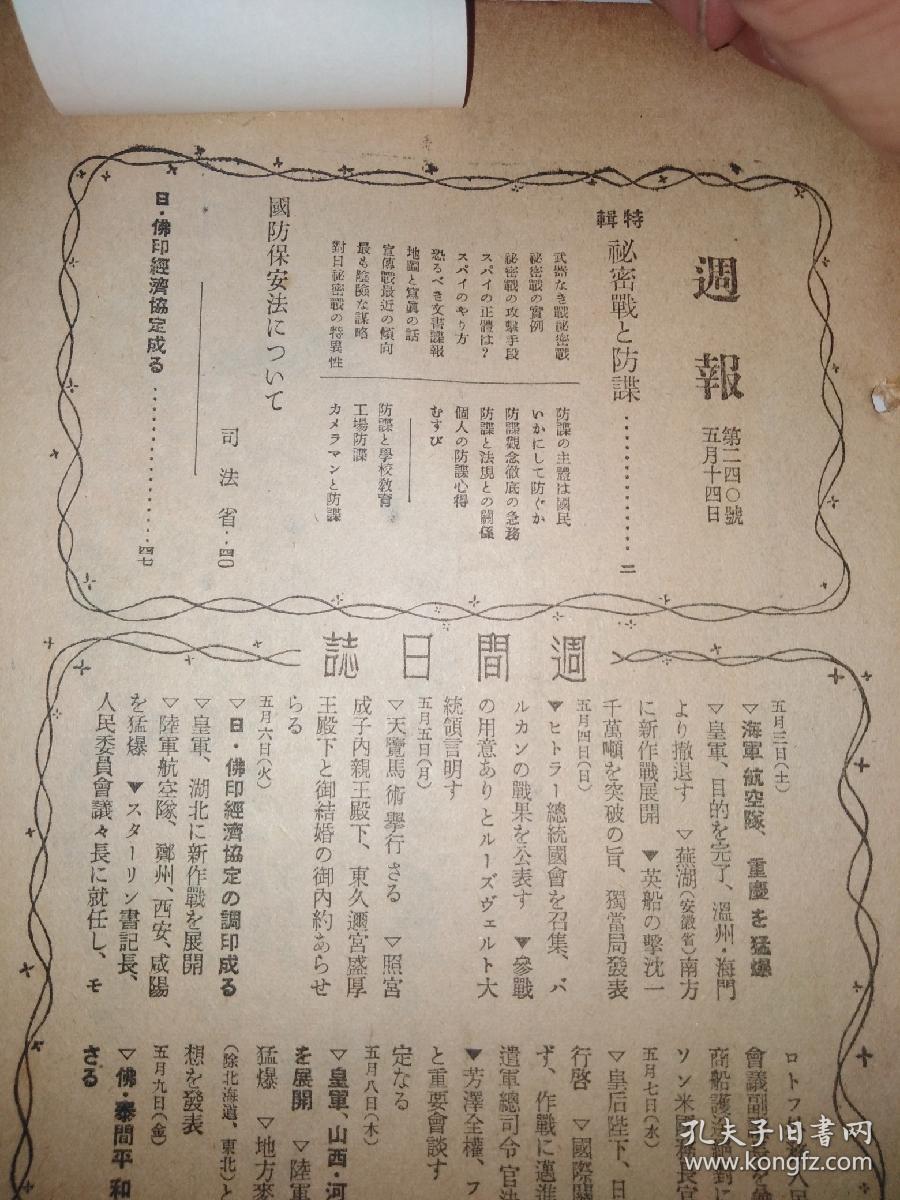 週報
第二四〇號
五月十四日
特輯
祕密戰と防諜……………二
武器なき戰祕密戰
祕密戰の實例
祕密戰の攻擊手段
スパイの正體は?
スパイのやり方
恐るべき文書諜報
地圖と寫眞の話
宣傳戰最近の傾向
最も陰險な謀略
對日祕密戰の特異性
防諜の主體は國民
いかにして防ぐか
防諜觀念徹底の急務
防諜と法規との關係
個人の防諜心得
むすび
防諜と學校敎育
工場防諜
カメラマンと防諜
國防保安法について
司法省‥四〇
日・佛印經濟協定成る……………四七
週間日誌
五月三日(土)
▽海軍航空隊、重慶を猛爆
▽皇軍、目的を完了、溫州・海門
より撤退す ▽蕪湖(安徽省)南方
に新作戰展開 ▼英船の擊沈一
千萬噸を突破の旨、獨當局發表
五月四日(日)
▼ヒトラー總統國會を召集、バ
ルカンの戰果を公表す ▼參戰
の用意ありとルーズヴェルト大
統領言明す
五月五日(月)
▽天覽馬術擧行さる ▽照宮
成子內親王殿下、東久邇宮盛厚
王殿下と御結婚の御內約あらせ
らる
五月六日(火)
▽日・佛印經濟協定の調印成る
▽皇軍、湖北に新作戰を展開
▽陸軍航空隊、鄭州、西安、咸陽
を猛爆 ▼スターリン書記長、
人民委員會議々長に就任し、モ
ロトフ
會議副
商船護
ソン米
五月七日(水)
▽皇后陛下、日
行啓 ▽國際關
ず、作戰に邁進
遣軍總司令官
▼芳澤全權、フ
と重要會談す
定なる
五月八日(木)
▽皇軍、山西・河
を展開 ▽陸軍
猛爆 ▽地方麥
(除北海道、東北)と
想を發表
五月九日(金)
▽佛・泰間平和
さる
孔夫子旧书网
www.kongfz.com